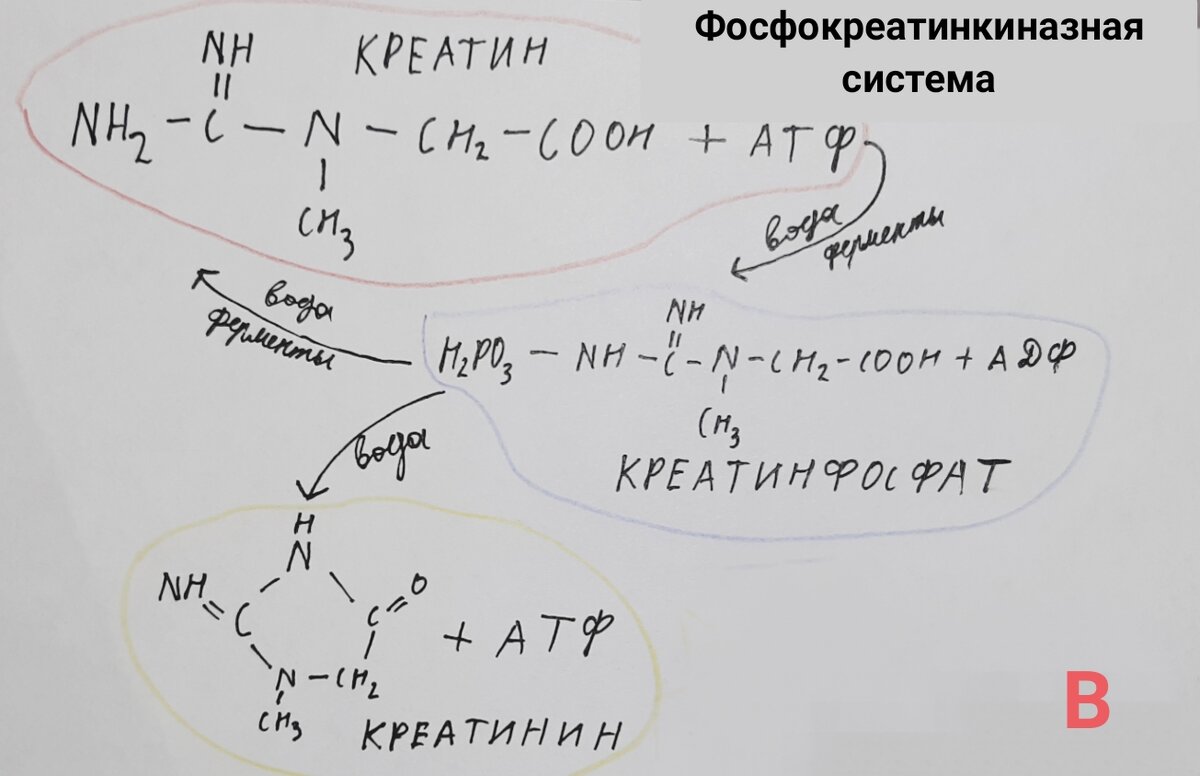 Фосфокреатинкиназная
система
NH КРЕАТИН
||
NH2 – C – N – CH2 – COOH + АТФ
|
CH3
вода
ферменты
вода
ферменты
NH
||
H2PO3 – NH – C – N – CH2 – COOH + АДФ
|
CH3
КРЕАТИНФОСФАТ
вода
H
N
NH = C
C = O
+ АТФ
N – CH2
CH3
КРЕАТИНИН
B